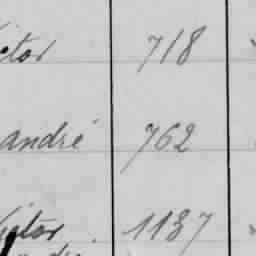 ctor 718
andré 762
Victor 1137